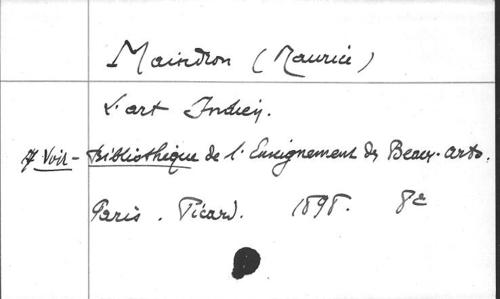 Maindron (Maurice)
L'art Indien.
Voir - Bibliothèque de l'Enseignement des Beaux-arts.
Paris. Picard. 1898. 8°